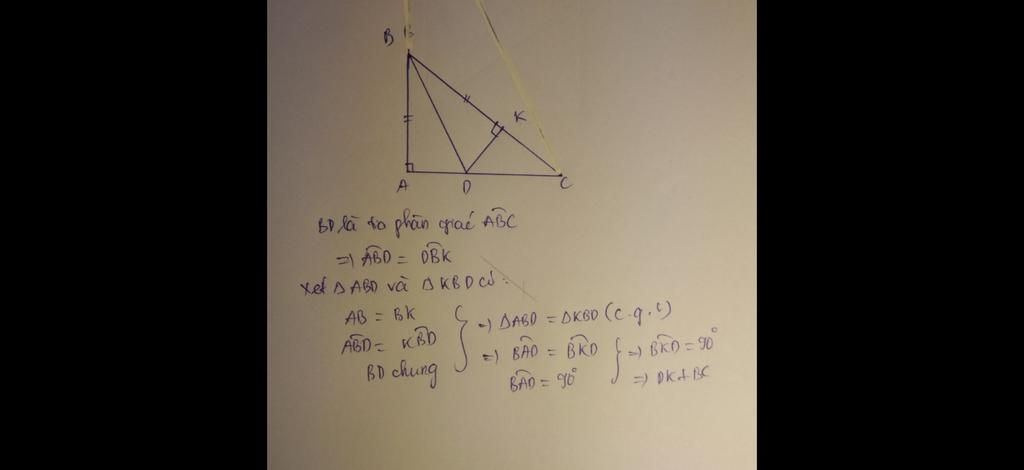 B B
K
A D C
BD là tia phân giác ABC
=> ABD = DBK
Xét Δ ABD và Δ KBD có:
AB = BK
ABD = KBD
BD chung
=> ΔABD = ΔKBD (c.g.c)
=> BAD = BKD
BAD = 90°
=> BKD = 90°
=> DK ⊥ BC